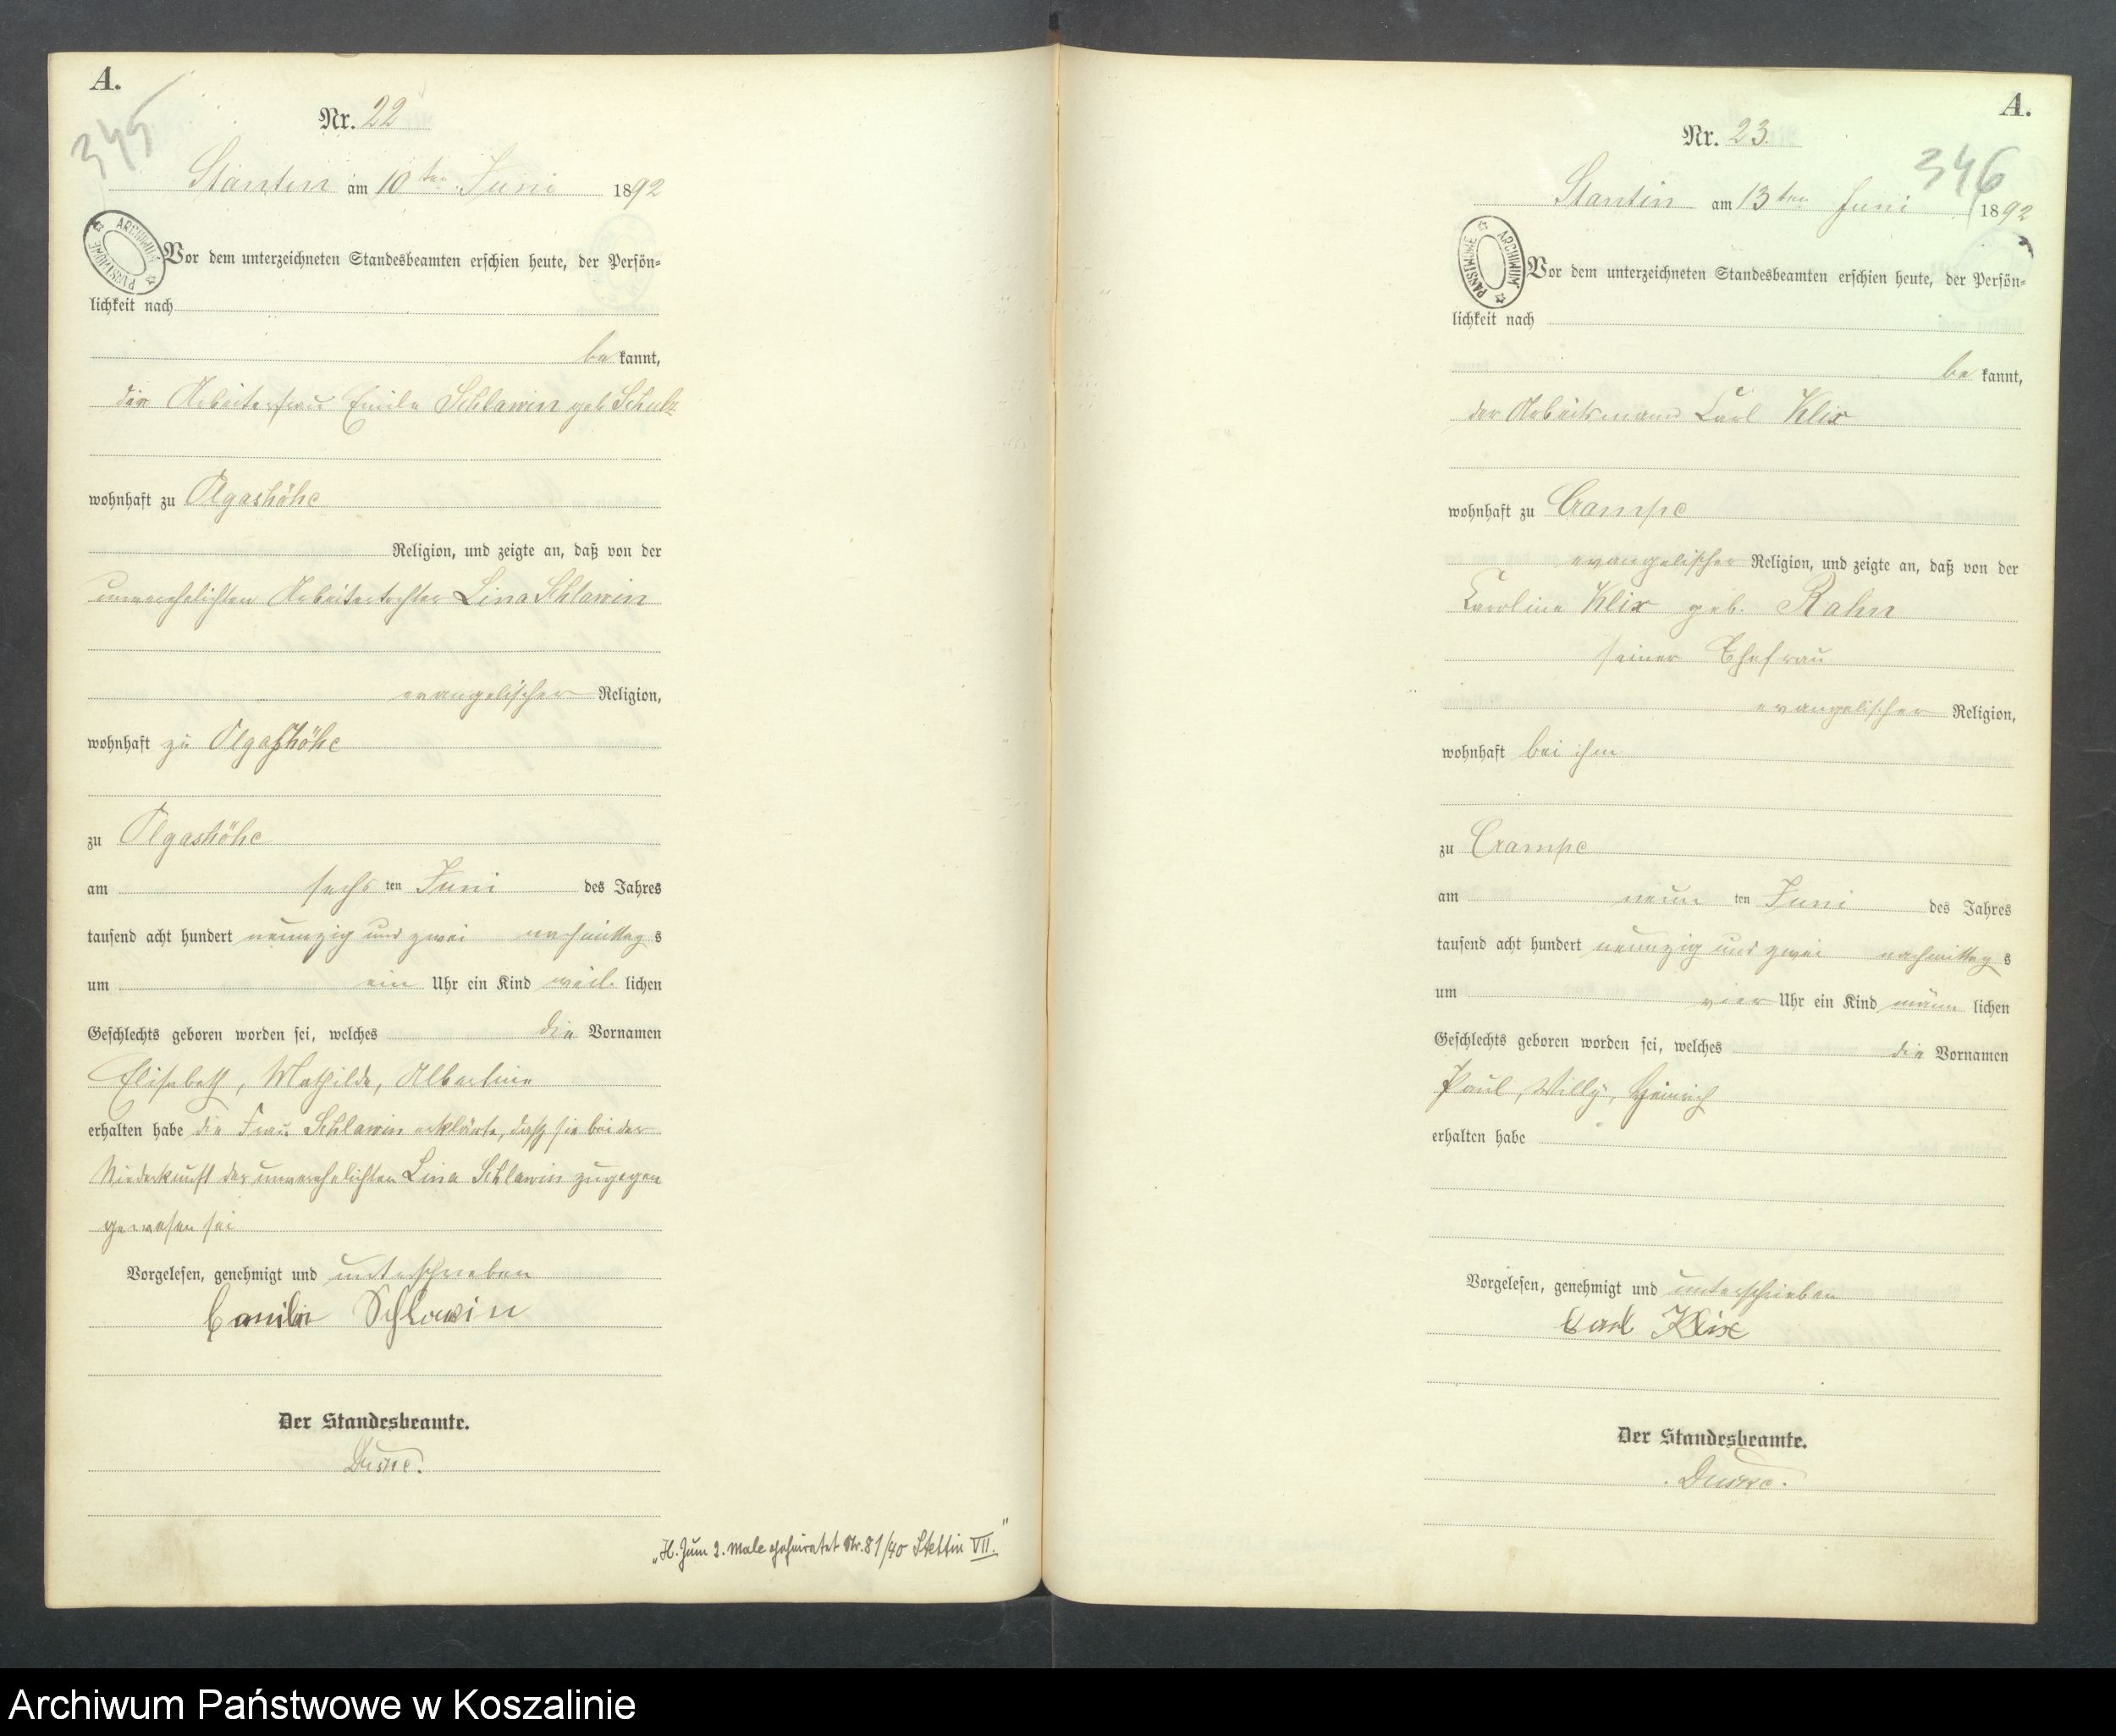 A.
345
Nr. 22
Stantin am 10ten Juni 1892
ARCHIWUM PAŃSTWOWE
Vor dem unterzeichneten Standesbeamten erschien heute, der Persön-
lichkeit nach
be kannt,
die Arbeiterfrau Emilie Schlawin geb Schulz
wohnhaft zu Olgashöhe
Religion, und zeigte an, daß von der
unverehelichten Arbeitertochter Lina Schlawin
evangelischer Religion,
wohnhaft zu Olgashöhe
zu Olgashöhe
am sechs ten Juni des Jahres
tausend acht hundert neunzig und zwei nachmittag s
um ein Uhr ein Kind weib lichen
Geschlechts geboren worden sei, welches die Vornamen
Elisabeth, Mathilde, Albertine
erhalten habe die Frau Schlawin erklärte, daß sie bei der
Niederkunft der unverehelichten Lina Schlawin zugegen
gewesen sei
Vorgelesen, genehmigt und unterschrieben
Emilie Schlawin
Der Standesbeamte.
„H. Zum 2. Male geheiratet Nr. 81/40 Stettin VII."
A.
346
Nr. 23.
Stantin am 13ten Juni 1892
ARCHIWUM PAŃSTWOWE
Vor dem unterzeichneten Standesbeamten erschien heute, der Persön-
lichkeit nach
be kannt,
der Arbeitsmann Carl Klix
wohnhaft zu Crampe
evangelischer Religion, und zeigte an, daß von der
Caroline Klix geb. Rahn
seiner Ehefrau
evangelischer Religion,
wohnhaft bei ihm
zu Crampe
am neun ten Juni des Jahres
tausend acht hundert neunzig und zwei nachmittag s
um vier Uhr ein Kind männ lichen
Geschlechts geboren worden sei, welches die Vornamen
Paul, Willy, Heinrich
erhalten habe
Vorgelesen, genehmigt und unterschrieben
Carl Klix
Der Standesbeamte.
Archiwum Państwowe w Koszalinie